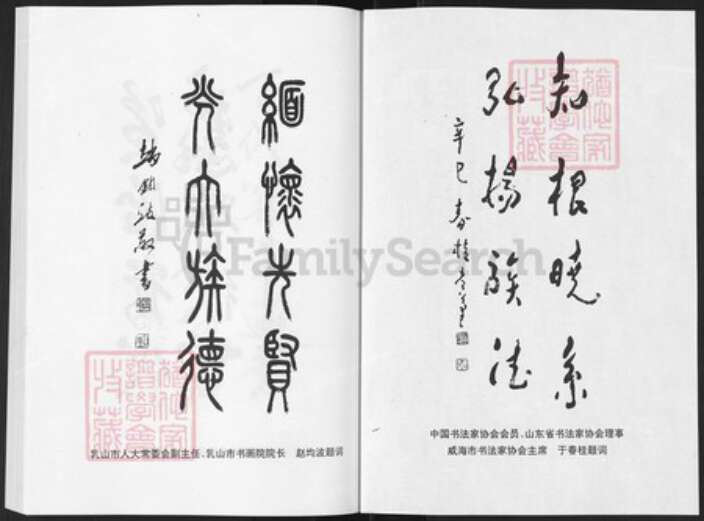 知根晓系
弘扬族德
辛巳 春桂
中国书法家协会会员、山东省书法家协会理事
威海市书法家协会主席 于春桂题词
緬懷先賢
光大族德
敬書
乳山市人大常委会副主任、乳山市书画院院长 赵均波题词
FamilySearch